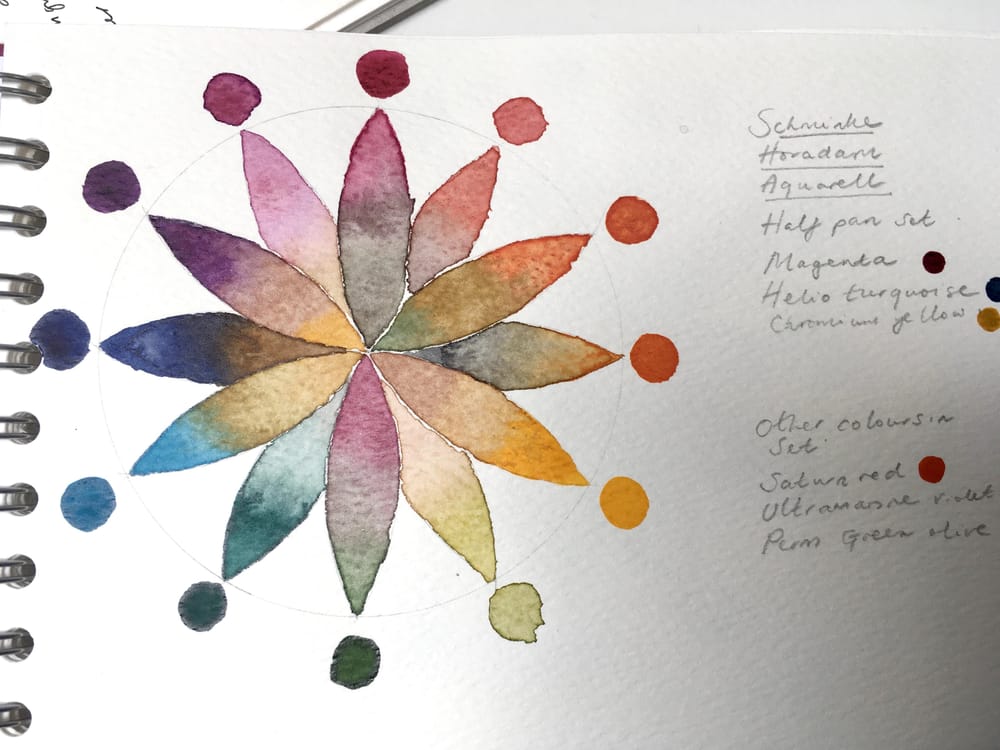 Schminke
Horadam
Aquarell
Half pan set
Magenta
Helio turquoise
Chromium yellow
Other colours in
Set
Saturn red
Ultramarine violet
Perm Green olive